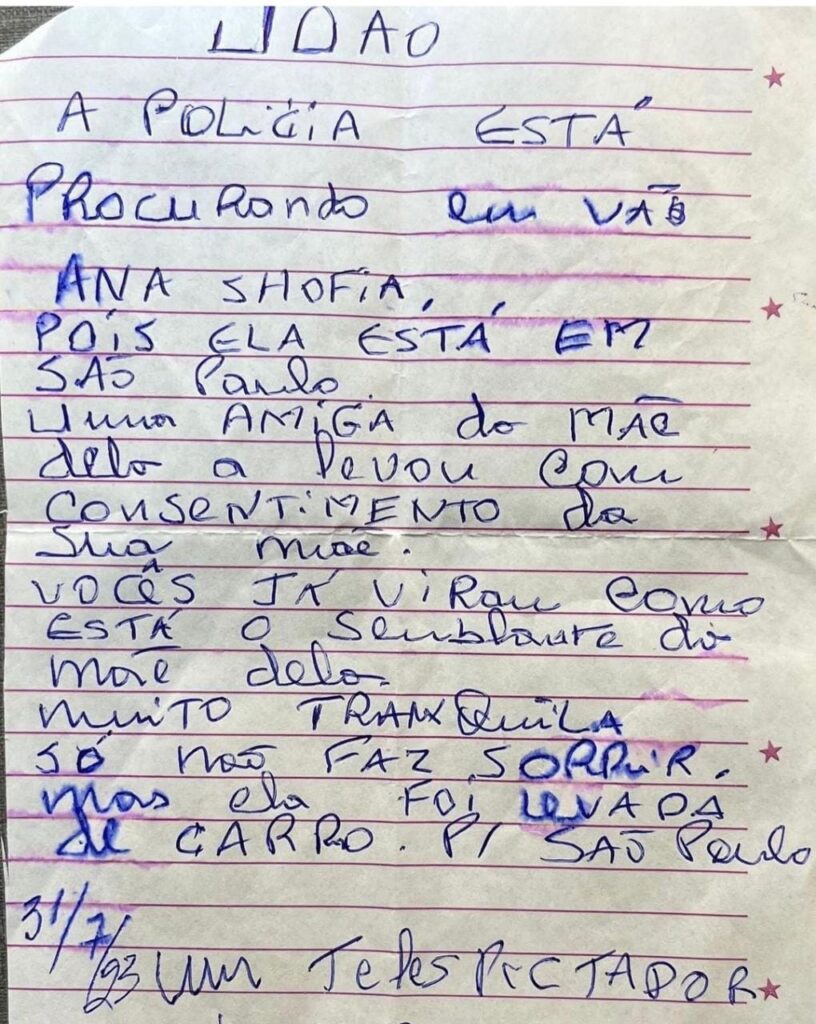 LIDAO
A POLiCiA ESTÁ
PROCURando em VÃO
ANA SHOFiA,
POiS ELA ESTÁ EM
SÃO Paulo.
Uma AMiGA da MÃE
dela a levou com
CONSENTiMENTO da
sua mãe.
VOCÊS JÁ ViRam como
ESTÁ O Semblante da
mãe dela
muiTO TRANXQuiLA
SÓ não FAZ SORRiR.
mas ela FOi LEVADA
de CARRO. P/ SÃO Paulo
31/7/23 um TelesPiCTADOR